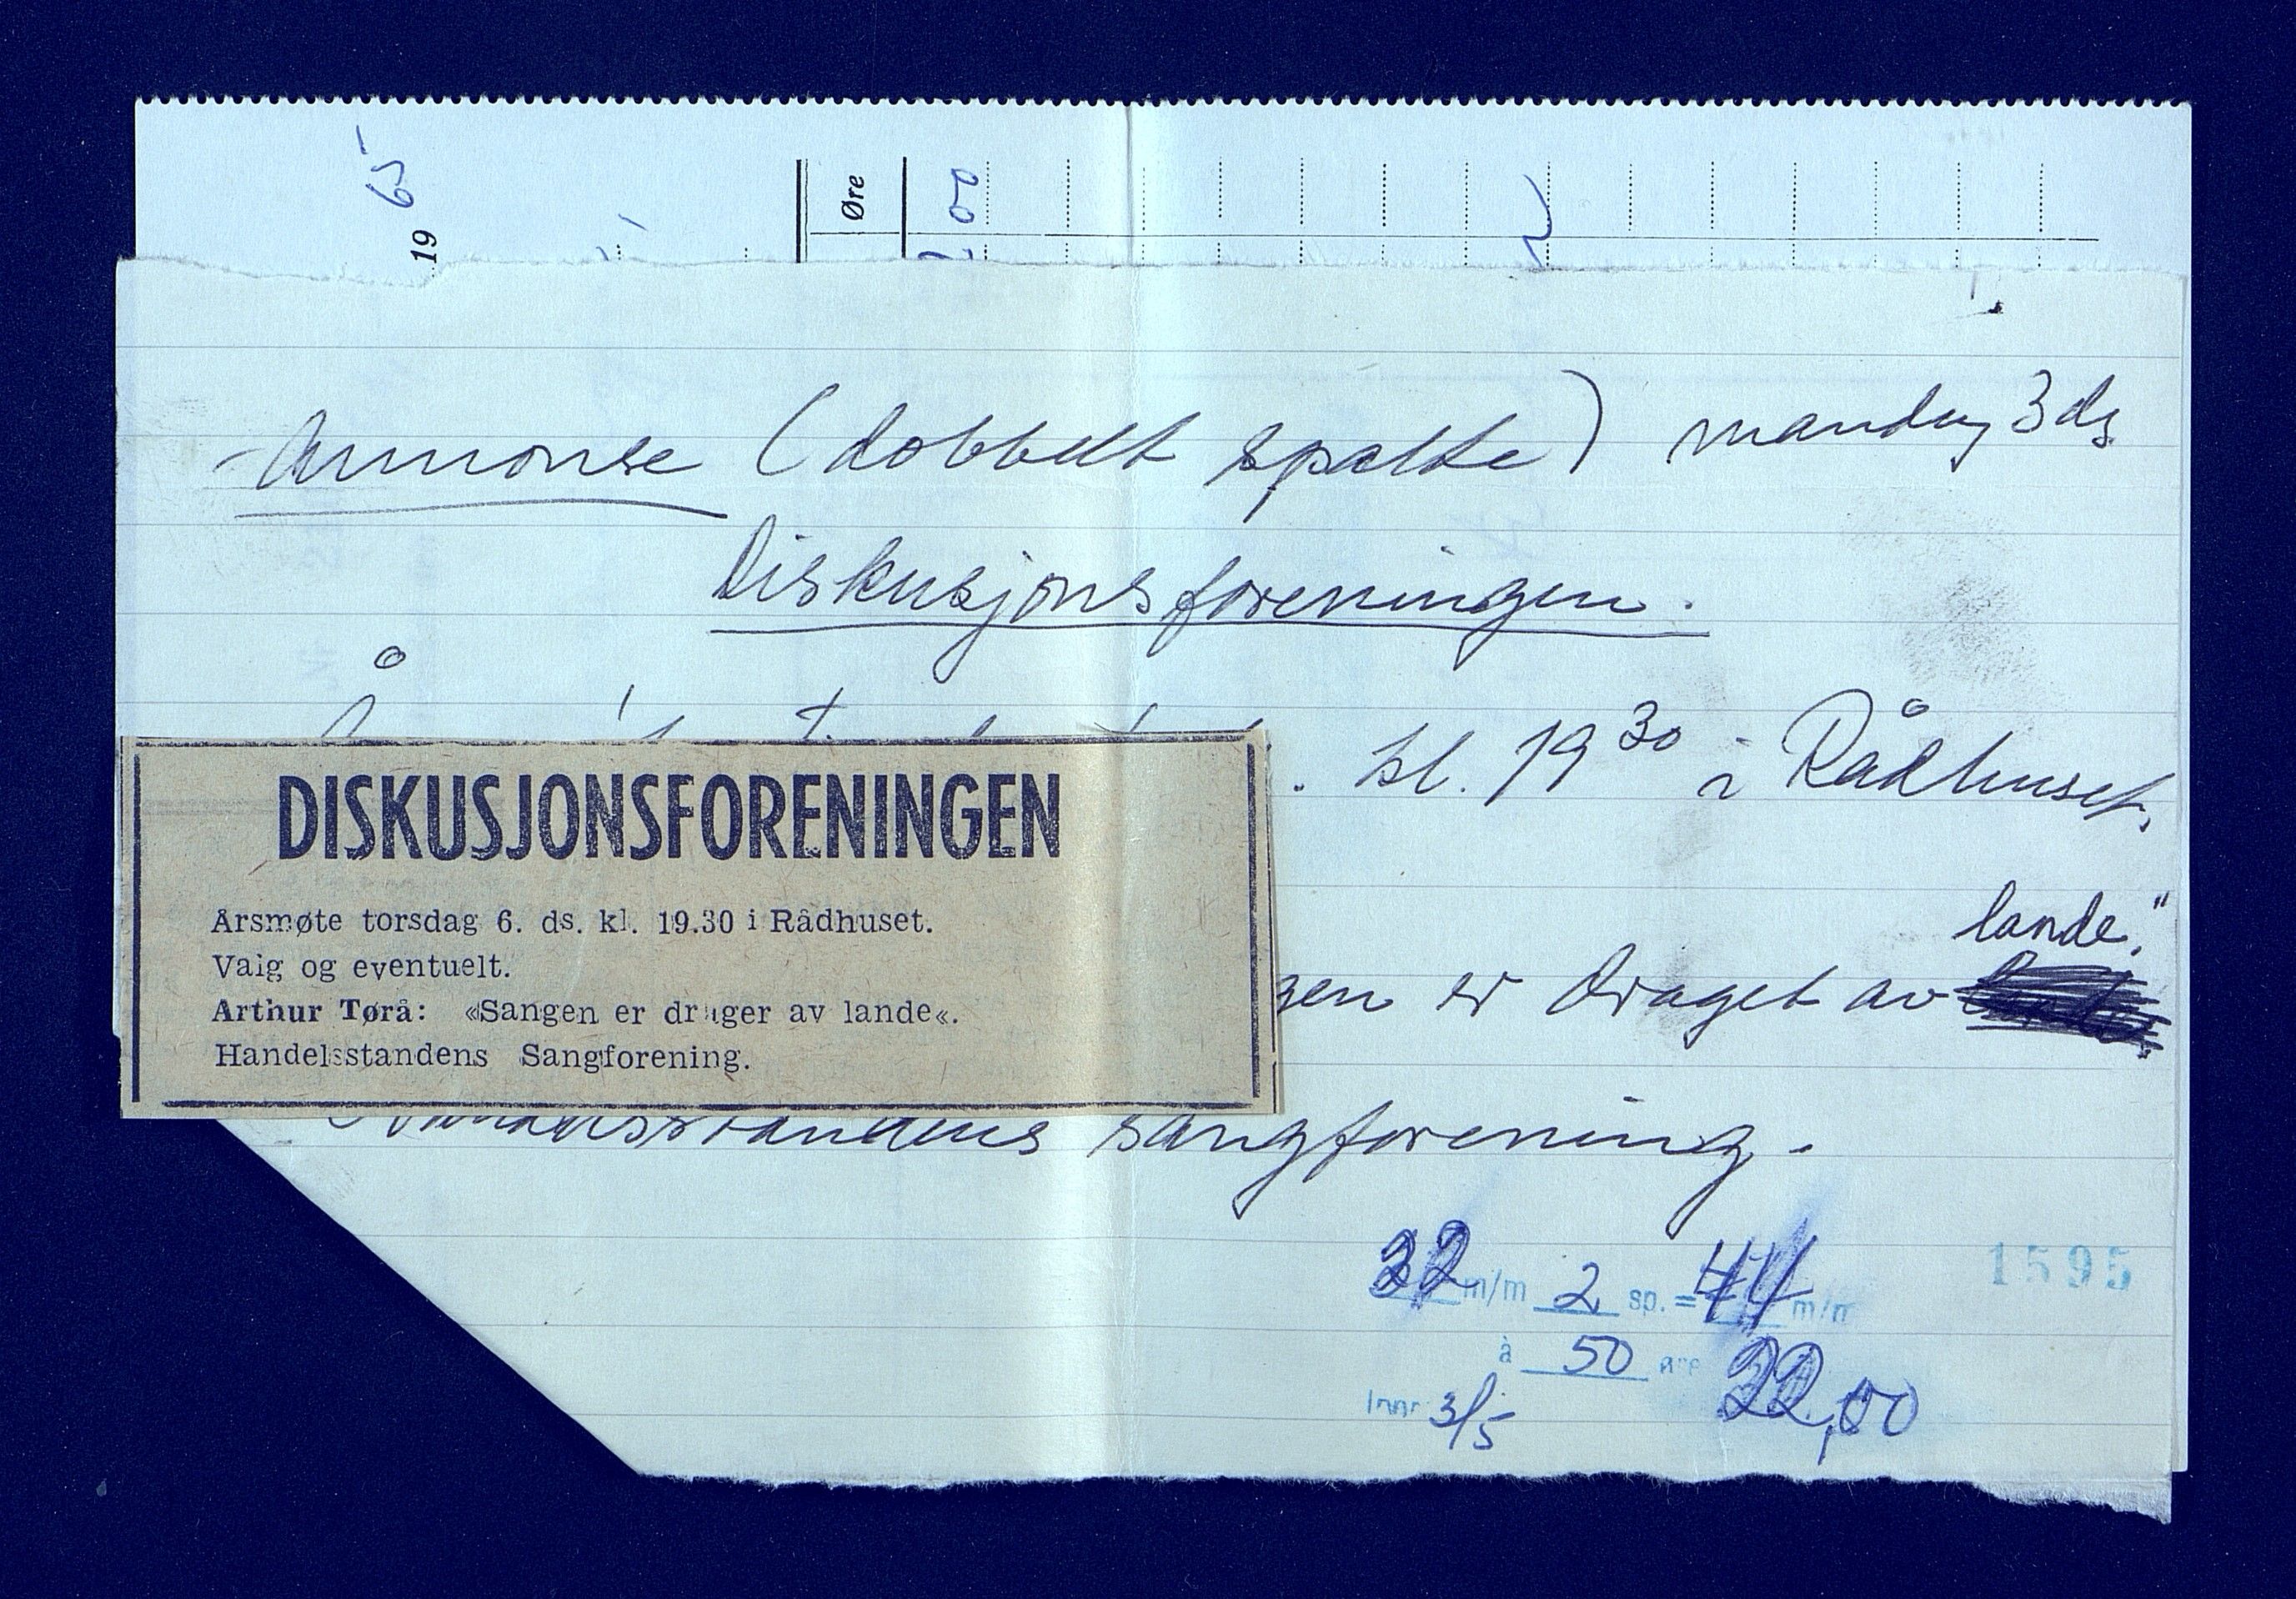 19 65
Øre
00
Annonse (dobbelt spalte) mandag 3 ds
Diskusjonsforeningen.
. kl. 19 30 i Rådhuset.
DISKUSJONSFORENINGEN
Årsmøte torsdag 6. ds. kl. 19.30 i Rådhuset.
Valg og eventuelt.
Arthur Tørå: «Sangen er drager av lande«.
Handelsstandens Sangforening.
lande."
gen er draget av
Handelsstandens sangforening.
22 m/m 2 sp. = 44 m/m
1595
à 50 øre 22,00
Innr 3/5